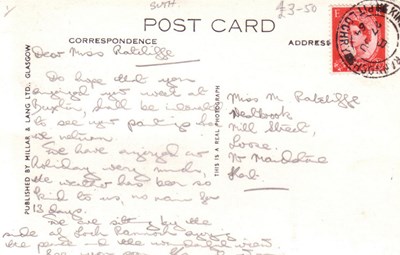 SUTH
£3-50
POST CARD
CORRESPONDENCE
ADDRESS
PUBLISHED BY MILLAR & LANG LTD., GLASGOW
THIS IS A REAL PHOTOGRAPH
Dear Miss Ratcliffe
Do hope that you
enjoyed your week at
Buxton, shall be
to see your paintings
we return.
We have enjoyed
holiday very much,
the weather has been so
kind to us, no rain for
13 days.
We are sitting by the
side of Loch Rannoch enjoying
the peace and the wonderful view.
Miss M. Ratcliffe
Mill Street,
Loose,
Nr Maidstone
Kent.